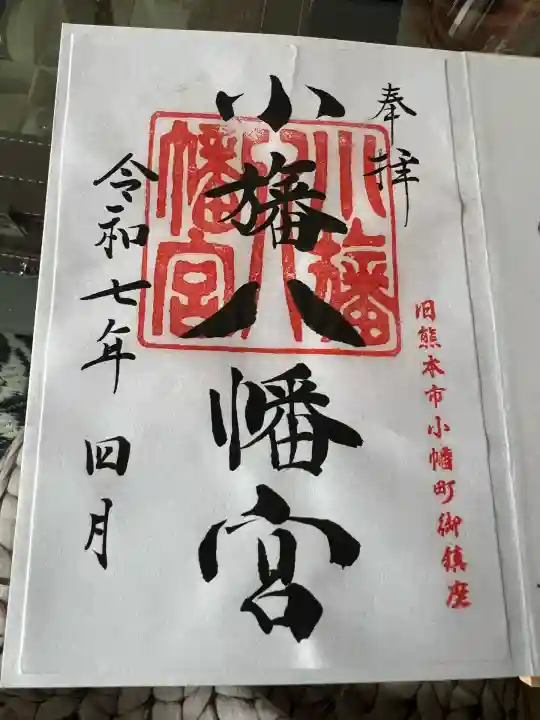 奉拝
旧熊本市小幡町御鎮座
小旛八幡宮
小旛
八
幡宮
令和七年 四月